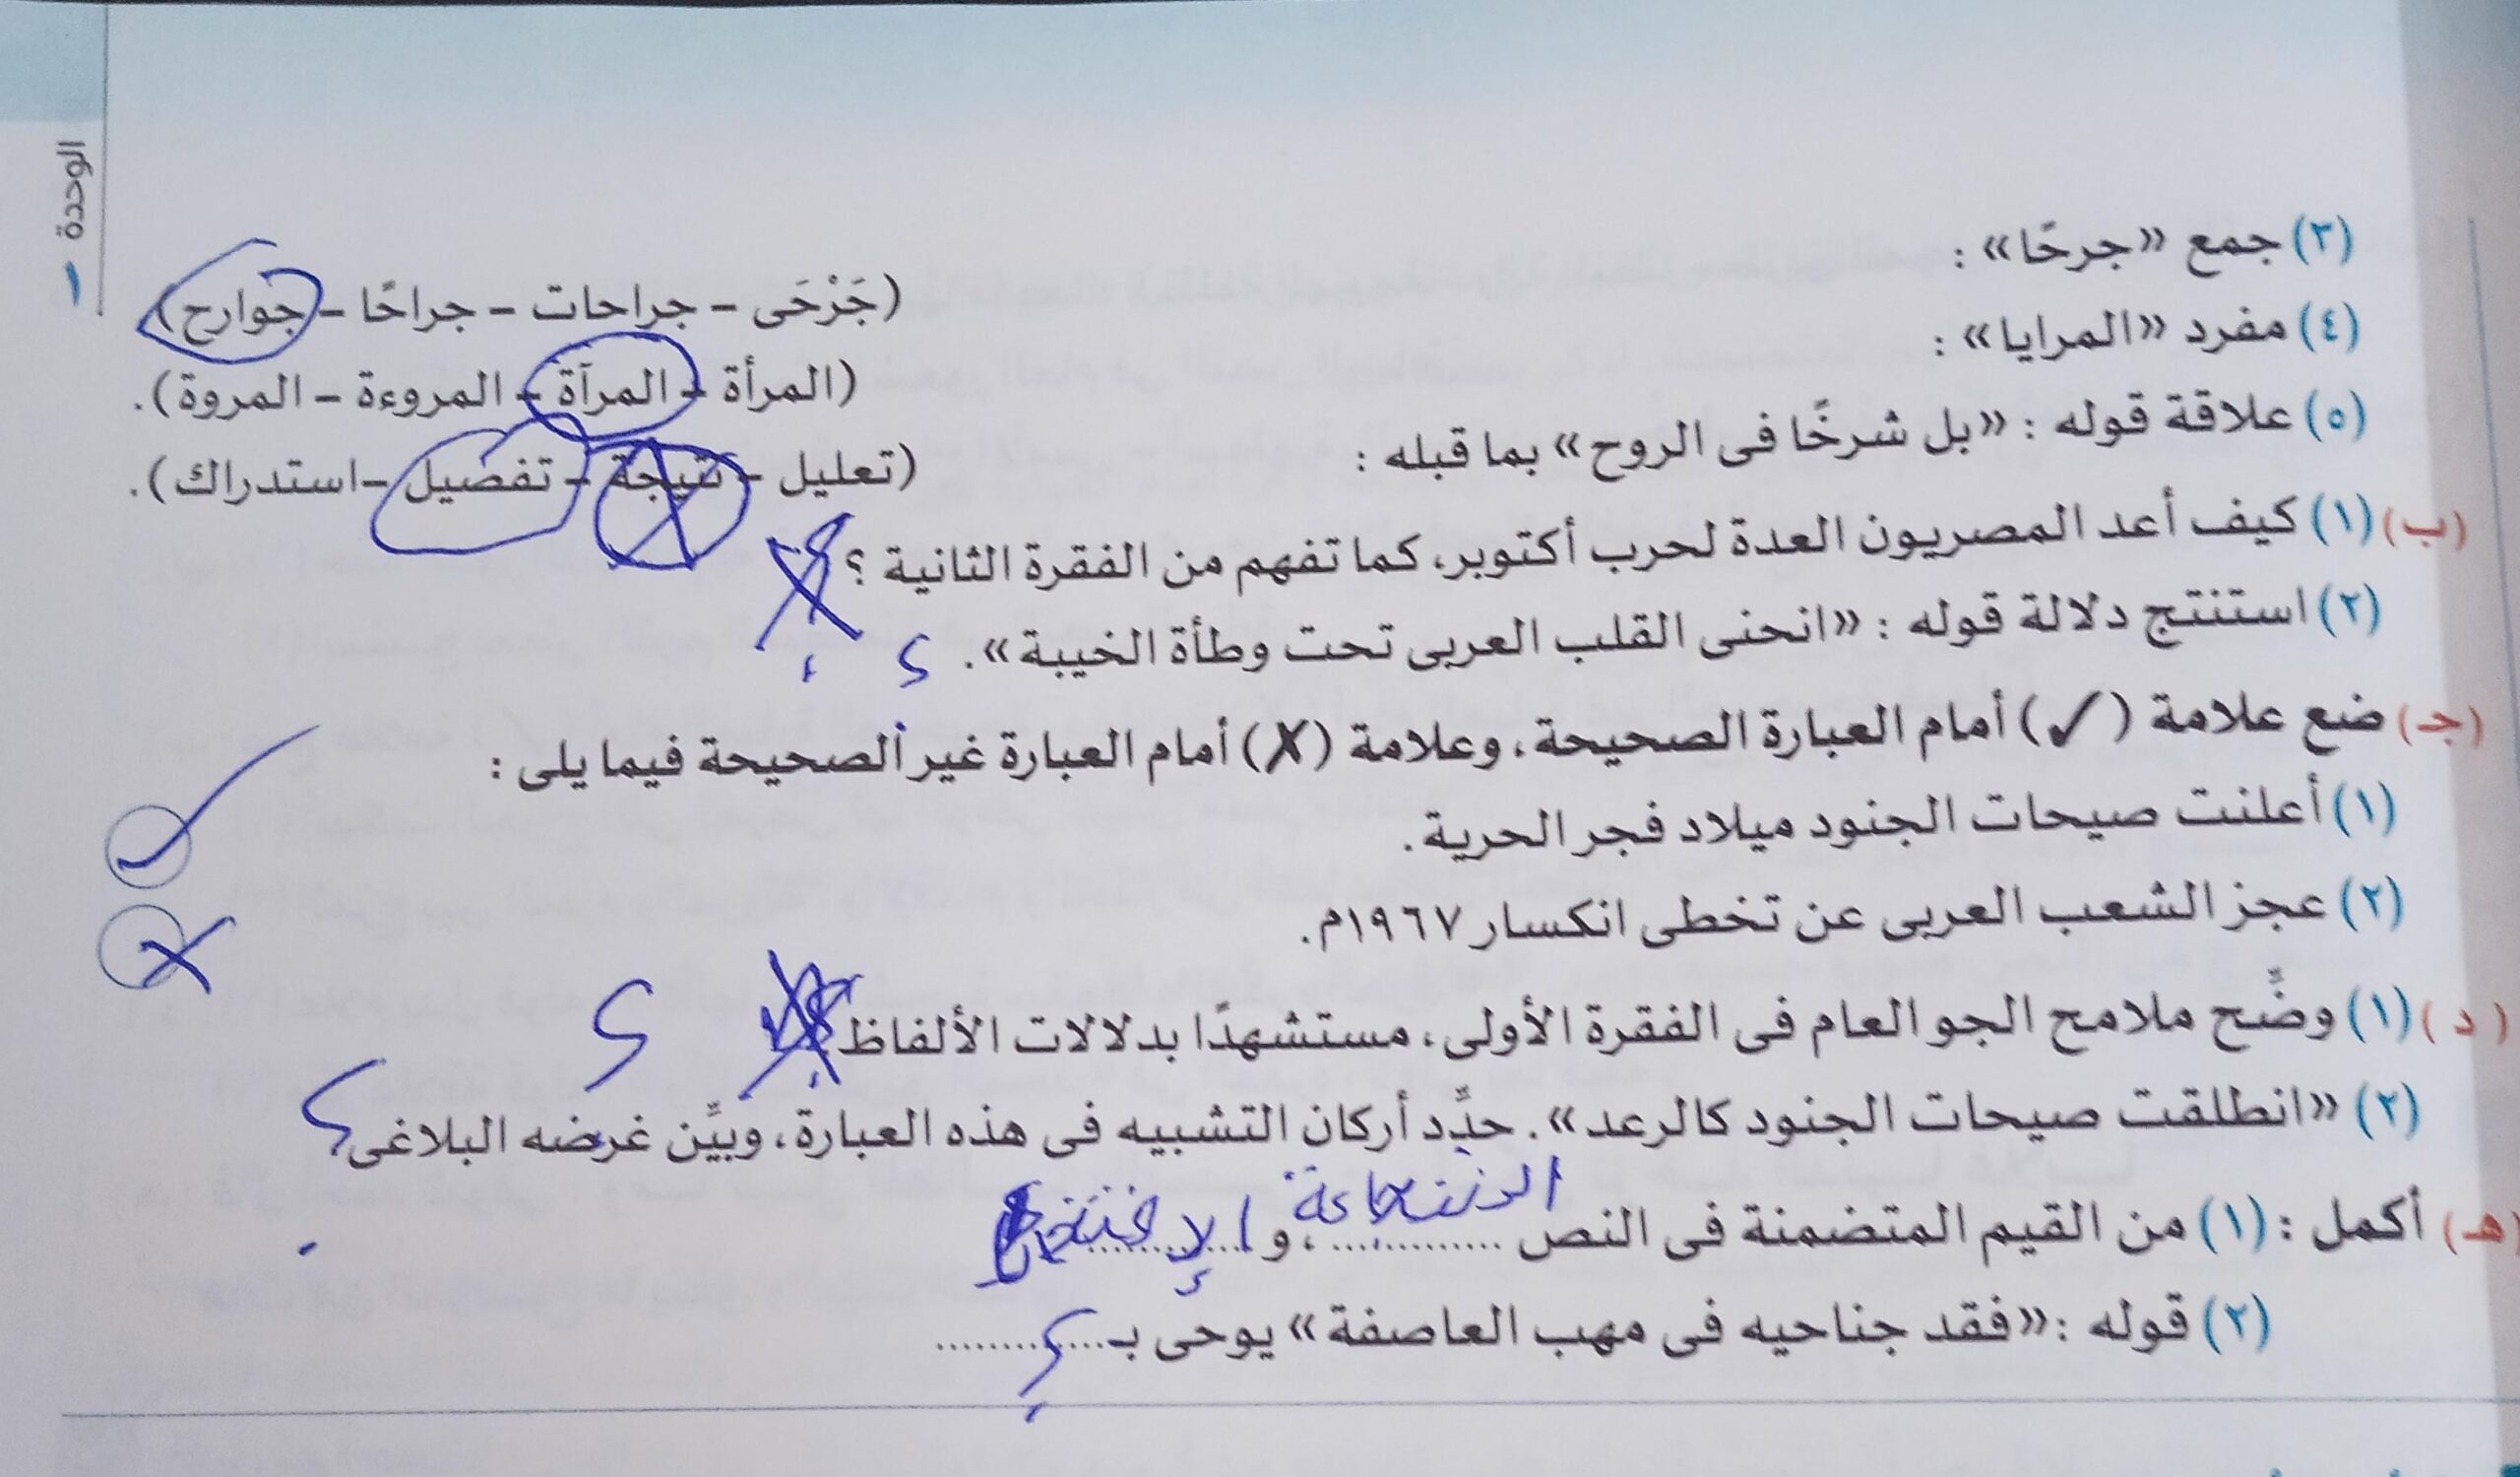 الوحدة ١
(٣) جمع «جرحًا» :
(جَرْحَى – جراحات – جراحًا – جوارح)
(٤) مفرد «المرايا» :
(المرأة – المرآة – المروءة – المروة).
(٥) علاقة قوله : «بل شرخًا فى الروح» بما قبله :
(تعليل – نتيجة – تفصيل – استدراك).
(ب) (١) كيف أعد المصريون العدة لحرب أكتوبر، كما تفهم من الفقرة الثانية ؟
(٢) استنتج دلالة قوله : «انحنى القلب العربى تحت وطأة الخيبة». ؟
(جـ) ضع علامة (✓) أمام العبارة الصحيحة، وعلامة (✗) أمام العبارة غير الصحيحة فيما يلى :
(١) أعلنت صيحات الجنود ميلاد فجر الحرية. ✓
(٢) عجز الشعب العربى عن تخطى انكسار ١٩٦٧م. ✗
(د) (١) وضِّح ملامح الجو العام فى الفقرة الأولى، مستشهدًا بدلالات الألفاظ ؟
(٢) «انطلقت صيحات الجنود كالرعد». حدِّد أركان التشبيه فى هذه العبارة، وبيِّن غرضه البلاغى ؟
(هـ) أكمل : (١) من القيم المتضمنة فى النص الشجاعة، و ............
(٢) قوله : «فقد جناحيه فى مهب العاصفة» يوحى بـ............ ؟